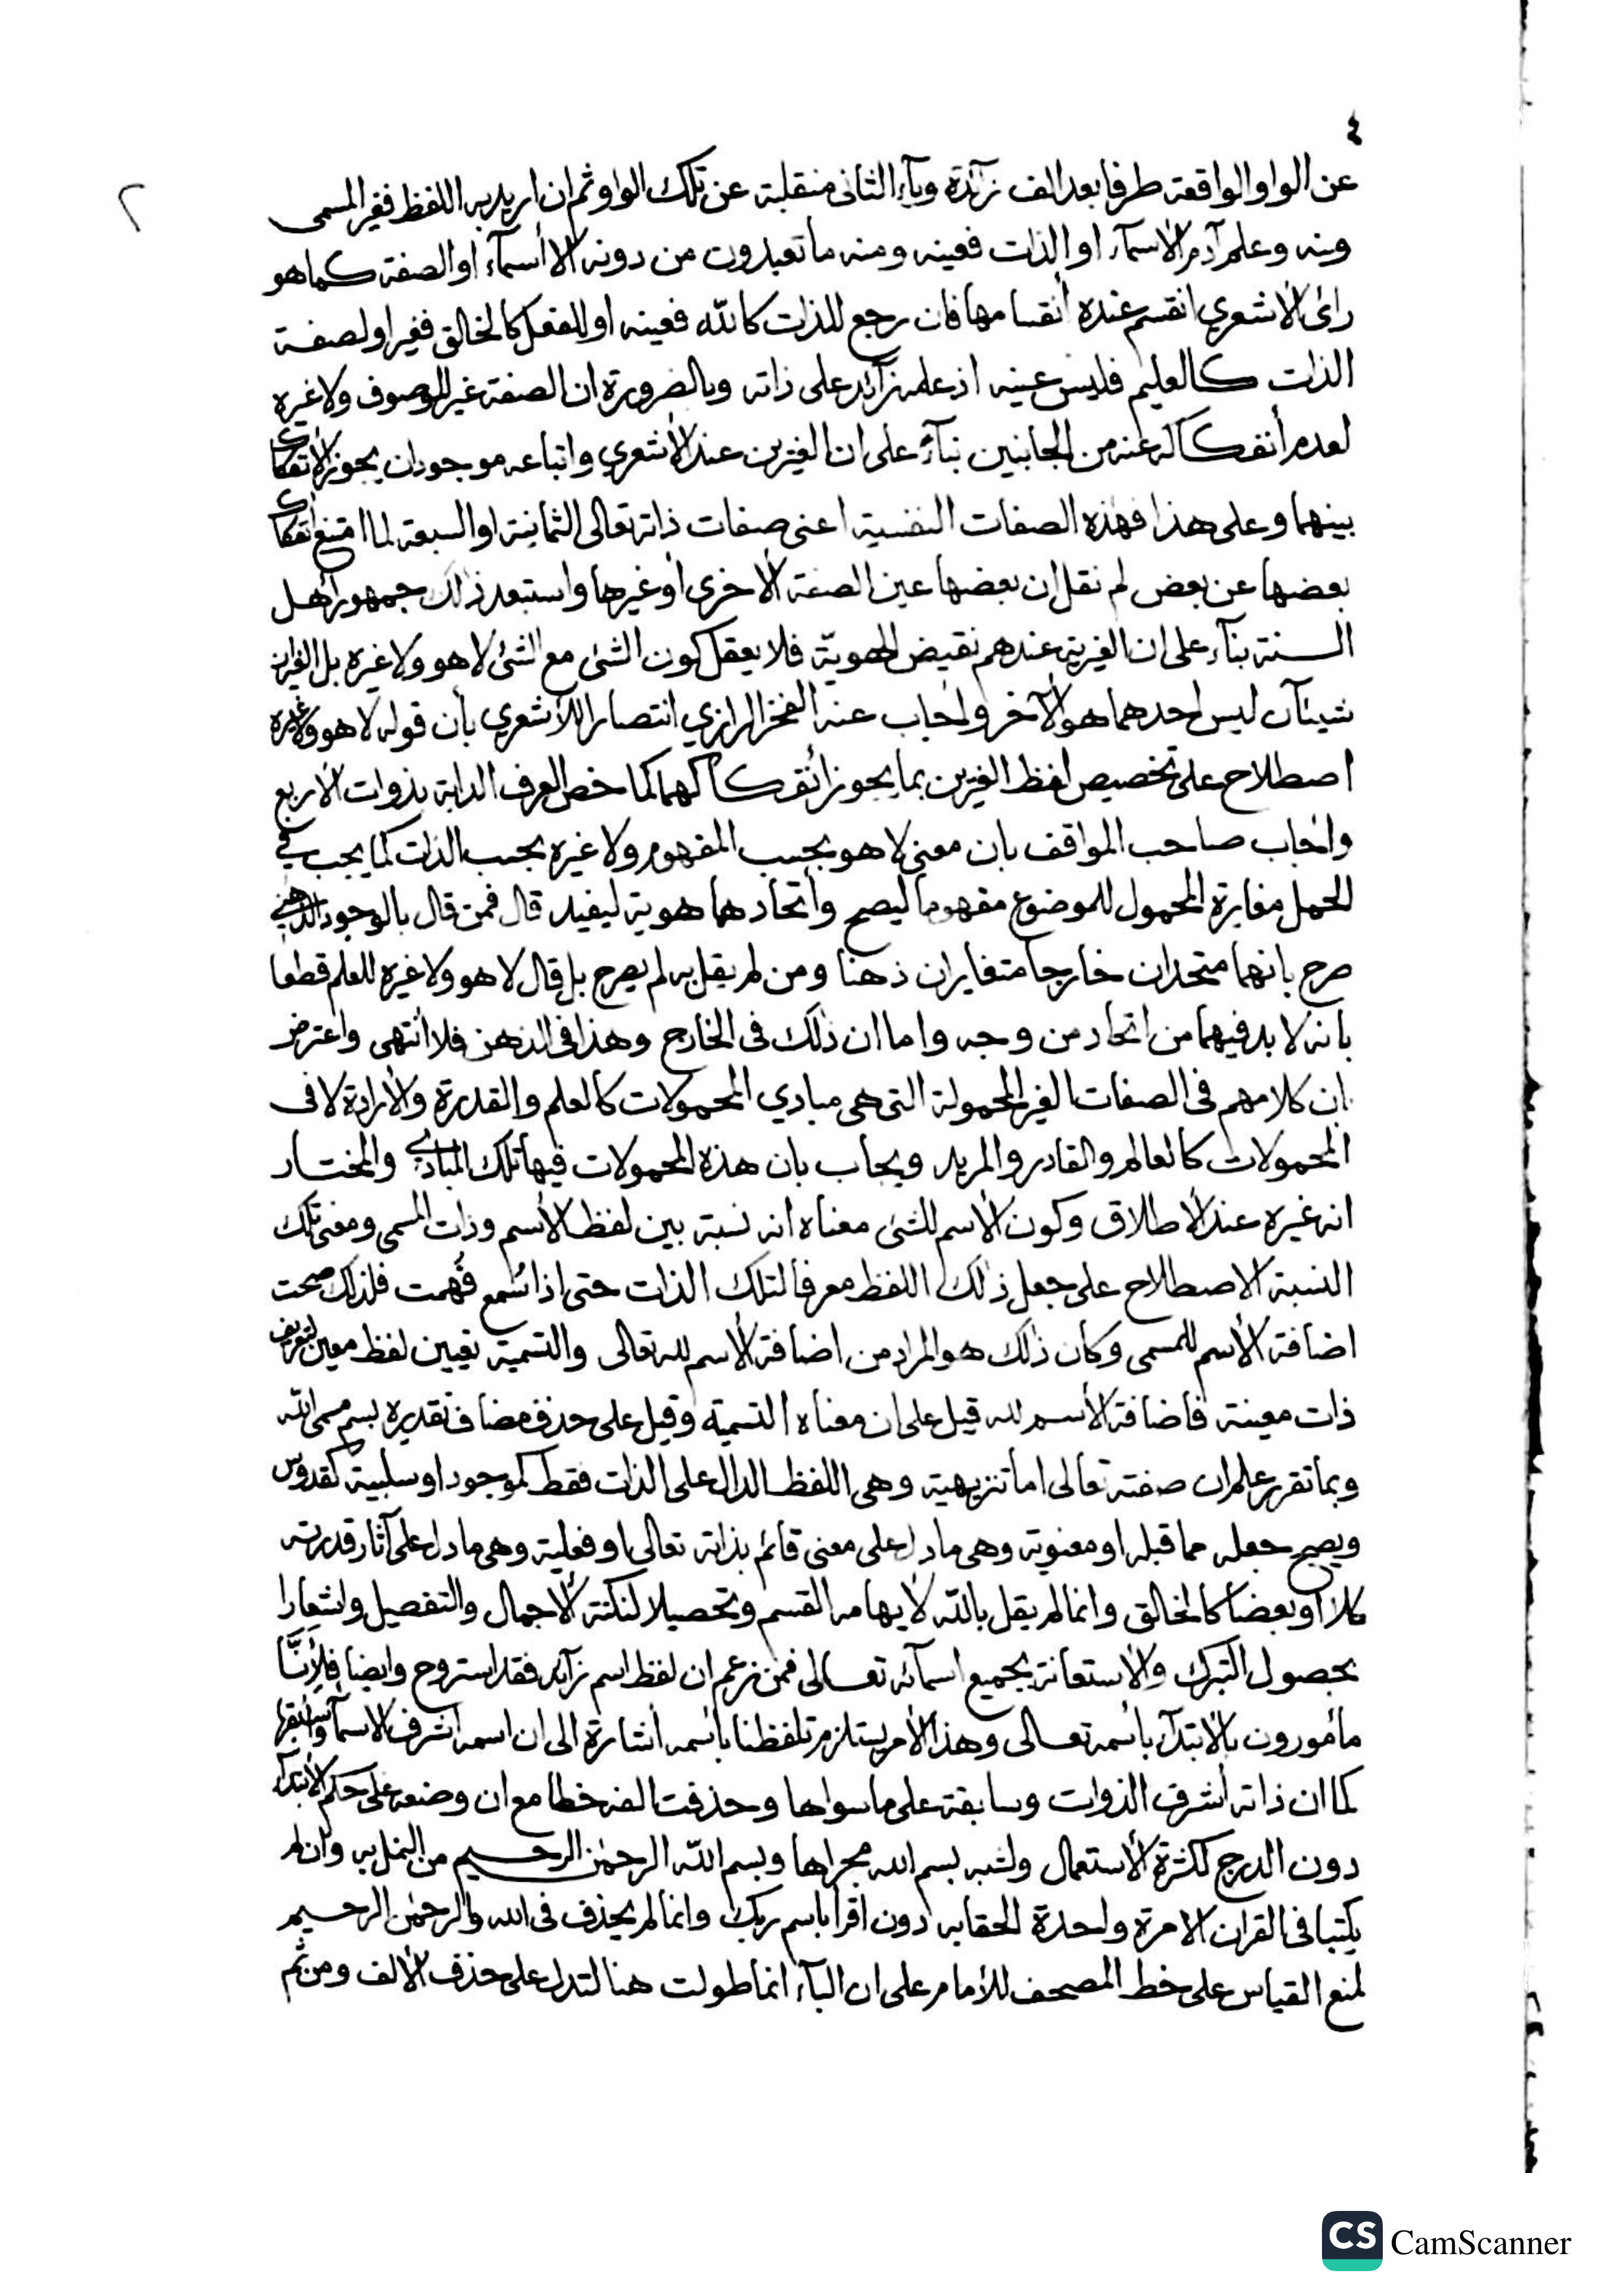 ٤
٢
عن الواو الواقعة طرفا بعد الف زآئدة ويآء الثانى منقلبة عن تلك الواو ثم ان اريد به اللفظ فغير المسمى
ومنه وعلم آدم الاسمآء او الذات فعينه ومنه ما تعبدون من دونه الا أسمآء او الصفة كما هو
رائ الأشعري انقسم عنده أنقسامها فان رجع للذات كالله فعينه او للفعل كالخالق فغير او لصفة
الذات كالعليم فليس عينه اذ علمه زآئد على ذاته وبالضرورة ان الصفة غير الموصوف ولا غيره
لعدم أنفكاكه عنه من الجانبين بنآء على ان الغيرين عند الأشعري واتباعه موجودان يجوز الأنفكاك
بينهما وعلى هذا فهذه الصفات النفسية اعنى صفات ذاته تعالى الثمانية او السبعة لما امتنع انفكاك
بعضها عن بعض لم نقل ان بعضها عين الصفة الأخرى أو غيرها واستبعد ذلك جمهور أهل
السنة بنآء على ان الغيرية عندهم نقيض الهوية فلا يعقل كون الشئ مع الشئ لا هو ولا غيره بل الغيران
شيئآن ليس احدهما هو الآخر وأجاب عنه الفخر الرازي انتصارا للأشعري بأن قوله لا هو ولا غيره
اصطلاح على تخصيص لفظ الغيرين بما يجوز أنفكاكهما كما خص العرف الدابة بذوات الأربع
وأجاب صاحب المواقف بان معنى لا هو بحسب المفهوم ولا غيره بحسب الذات كما يجب في
الحمل مغايرة المحمول للموضوع مفهوما ليصح وأتحادهما هوية ليفيد قال فمن قال بالوجود الذهني
صرح بانهما متحدان خارجا متغايران ذهنا ومن لم يقل به لم يصرح بل قال لا هو ولا غيره للعلم قطعا
بانه لا بد فيهما من اتحاد من وجه واما ان ذلك فى الخارج وهذا فى الذهن فلا أنتهى واعترض
بان كلامهم فى الصفات الغير المحمولة التى هى مبادي المحمولات كالعلم والقدرة والأرادة لا فى
المحمولات كالعالم والقادر والمريد ويجاب بان هذه المحمولات فيها تلك المبادي والمختار
انه غيره عند الأطلاق وكون الاسم للشئ معناه انه نسبة بين لفظ الأسم وذات المسمى ومعنى تلك
النسبة الاصطلاح على جعل ذلك اللفظ معرفا لتلك الذات حتى اذا سُمع فُهمت فلذلك صحت
اضافة الأسم للمسمى وكان ذلك هو المراد من اضافة الأسم لله تعالى والتسمية تعيين لفظ معين لتعريف
ذات معينة فأضافة الأسم لله قيل على ان معناه التسمية وقيل على حذف مضاف تقديره بسم مسمى الله
وبما تقرر علم ان صفته تعالى اما تنزيهية وهى اللفظ الدال على الذات فقط كموجود او سلبية كقدوس
ويصح جعله مما قبله او معنوية وهى ما دل على معنى قائم بذاته تعالى او فعلية وهى ما دل على آثار قدرته
كلا أو بعضا كالخالق وانما لم يقل بالله لأيهامه القسم وتحصيلا لنكتة الأجمال والتفصيل وإشعارا
بحصول التبرك والأستعانة بجميع اسمآئه تعالى فمن زعم ان لفظ اسم زآئد فقد استروح وايضا فلأنَّا
مأمورون بالأبتدآء بأسمه تعالى وهذا الأمر يستلزم تلفظنا بأسمه أشارة الى ان اسمه اشرف الاسمآء وأسبقها
كما ان ذاته أشرف الذوات وسابقة على ما سواها وحذفت الفه خطا مع ان وضعه على حكم الأبتدآء
دون الدرج لكثرة الأستعمال ولشبه بسم الله مجراها وبسم الله الرحمن الرحيم من النمل به وان لم
يكتبا فى القران الا مرة واحدة الحقا به دون اقرأ باسم ربك وانما لم يحذف فى الله والرحمن الرحيم
لمنع القياس على خط المصحف للأمام على ان البآء انما طولت هنا لتدل على حذف الألف ومن ثم
CS CamScanner